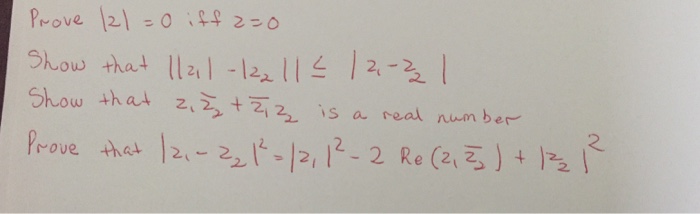 Prove |z| = 0 iff z = 0
Show that ||z₁| - |z₂|| ≤ |z₁ - z₂|
Show that z₁z̄₂ + z̄₁z₂ is a real number
Prove that |z₁ - z₂|² = |z₁|² - 2 Re(z₁z̄₂) + |z₂|²